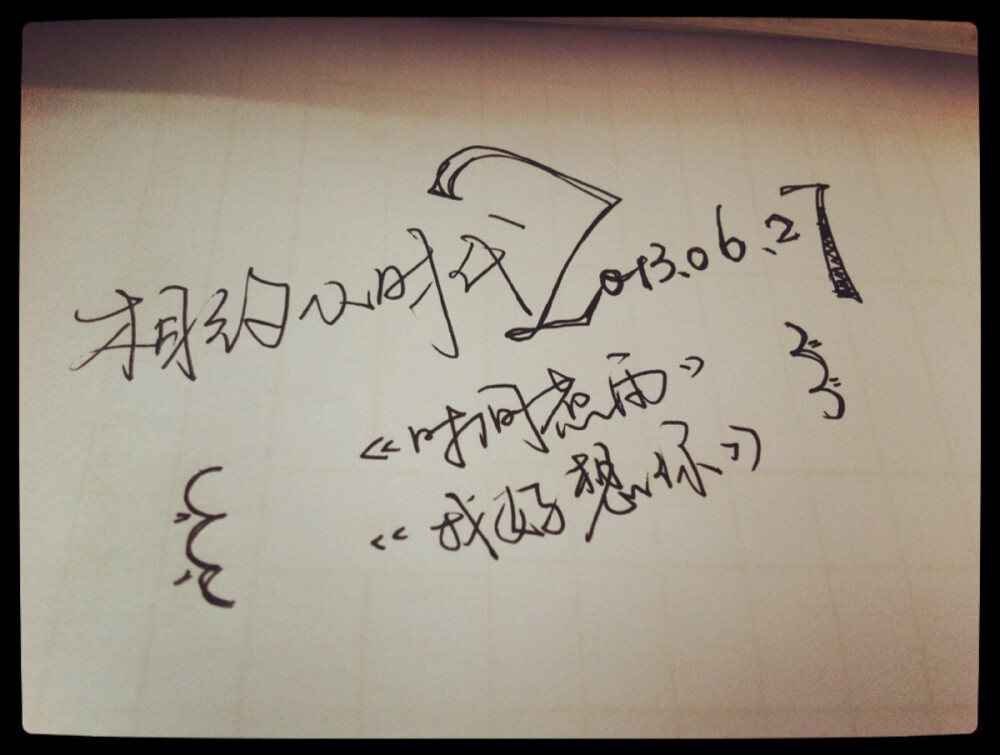 相约小时代 2013.06.27
《时间煮雨》
《我好想你》